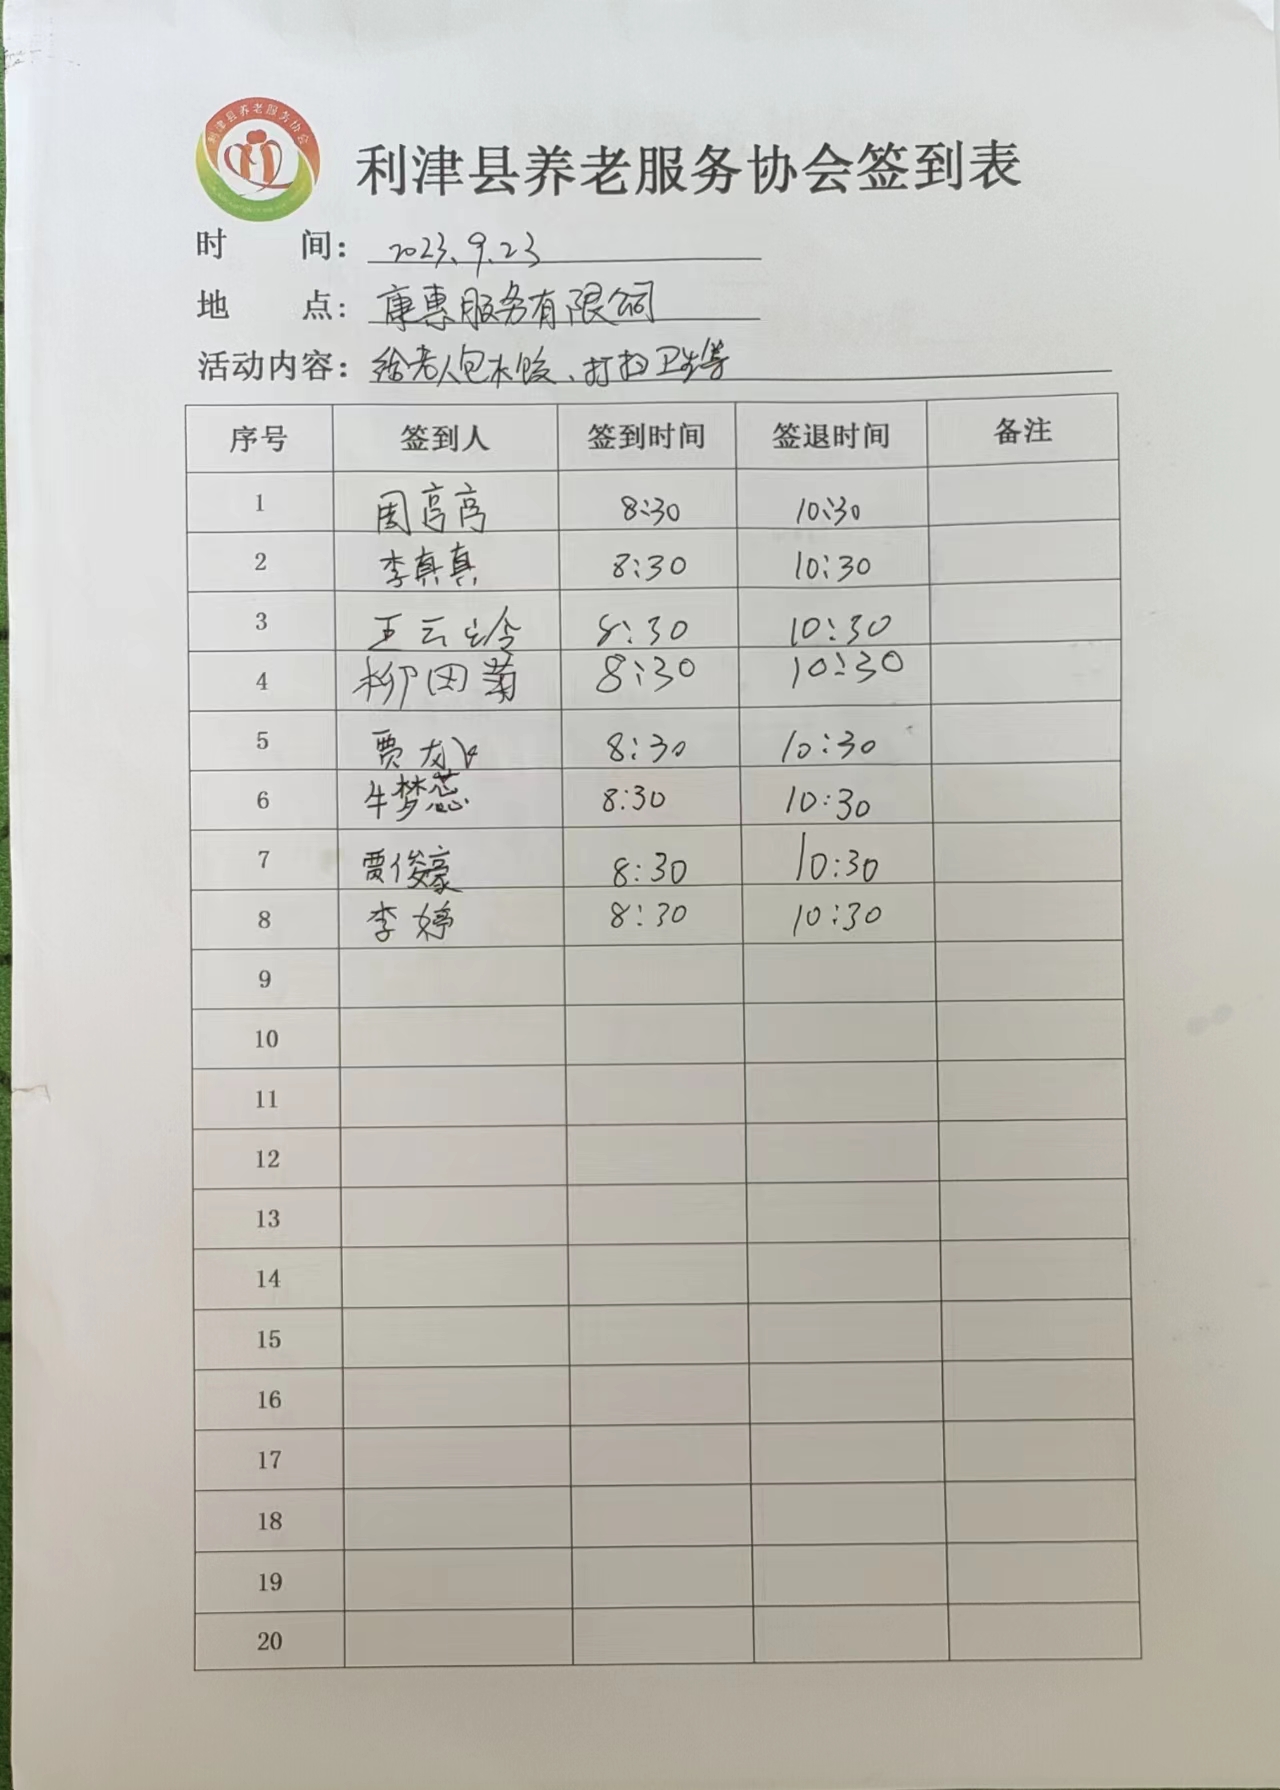 利津县养老服务协会
利津县养老服务协会签到表
时 间：2023.9.23
地 点：康惠服务有限公司
活动内容：给老人包水饺、打扫卫生等
序号 签到人 签到时间 签退时间 备注
1 周亭亭 8:30 10:30
2 李真真 8:30 10:30
3 王云玲 8:30 10:30
4 柳田菊 8:30 10:30
5 贾 8:30 10:30
6 牛梦蕊 8:30 10:30
7 贾俊豪 8:30 10:30
8 李婷 8:30 10:30
9
10
11
12
13
14
15
16
17
18
19
20